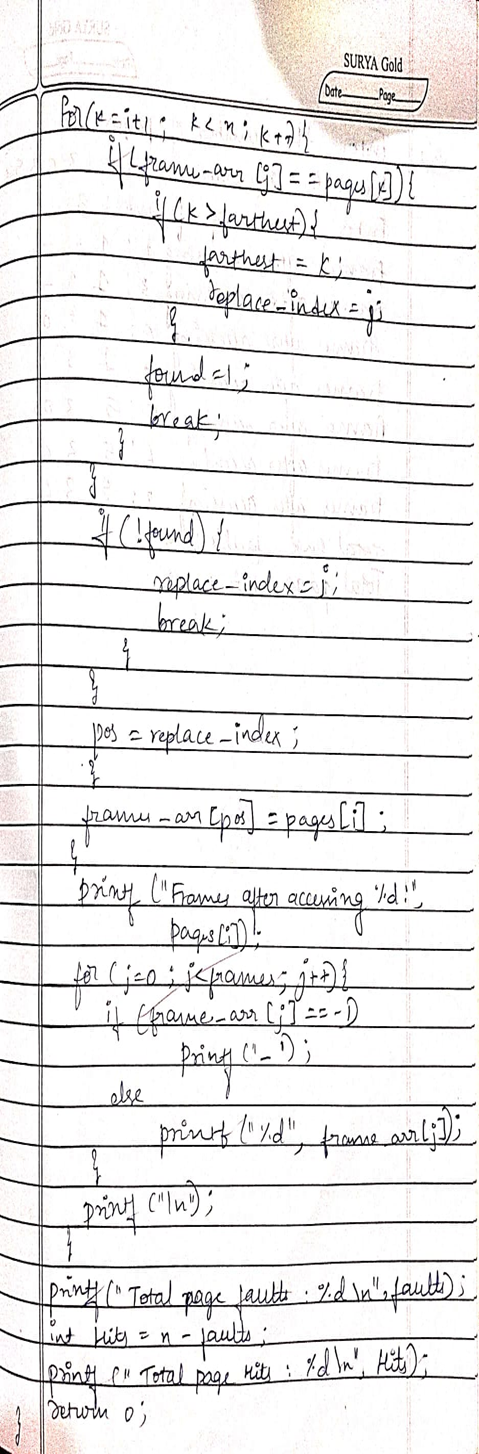 SURYA Gold
Date Page
for(k=i+1; k<n; k++){
if(frame_arr[j]==pages[k]){
if(k>farthest){
farthest = k;
replace_index = j;
}
found=1;
break;
}
}
if(!found){
replace_index=j;
break;
}
}
pos = replace_index;
}
frame_arr[pos]=pages[i];
}
printf("Frames after accessing %d:",
pages[i]);
for (j=0; j<frames; j++){
if (frame_arr[j]==-1)
printf("_");
else
printf("%d", frame arr[j]);
}
printf("\n");
}
printf("Total page faults : %d \n", faults);
int Hits = n - faults;
printf("Total page Hits : %d \n", Hits);
return 0;
}